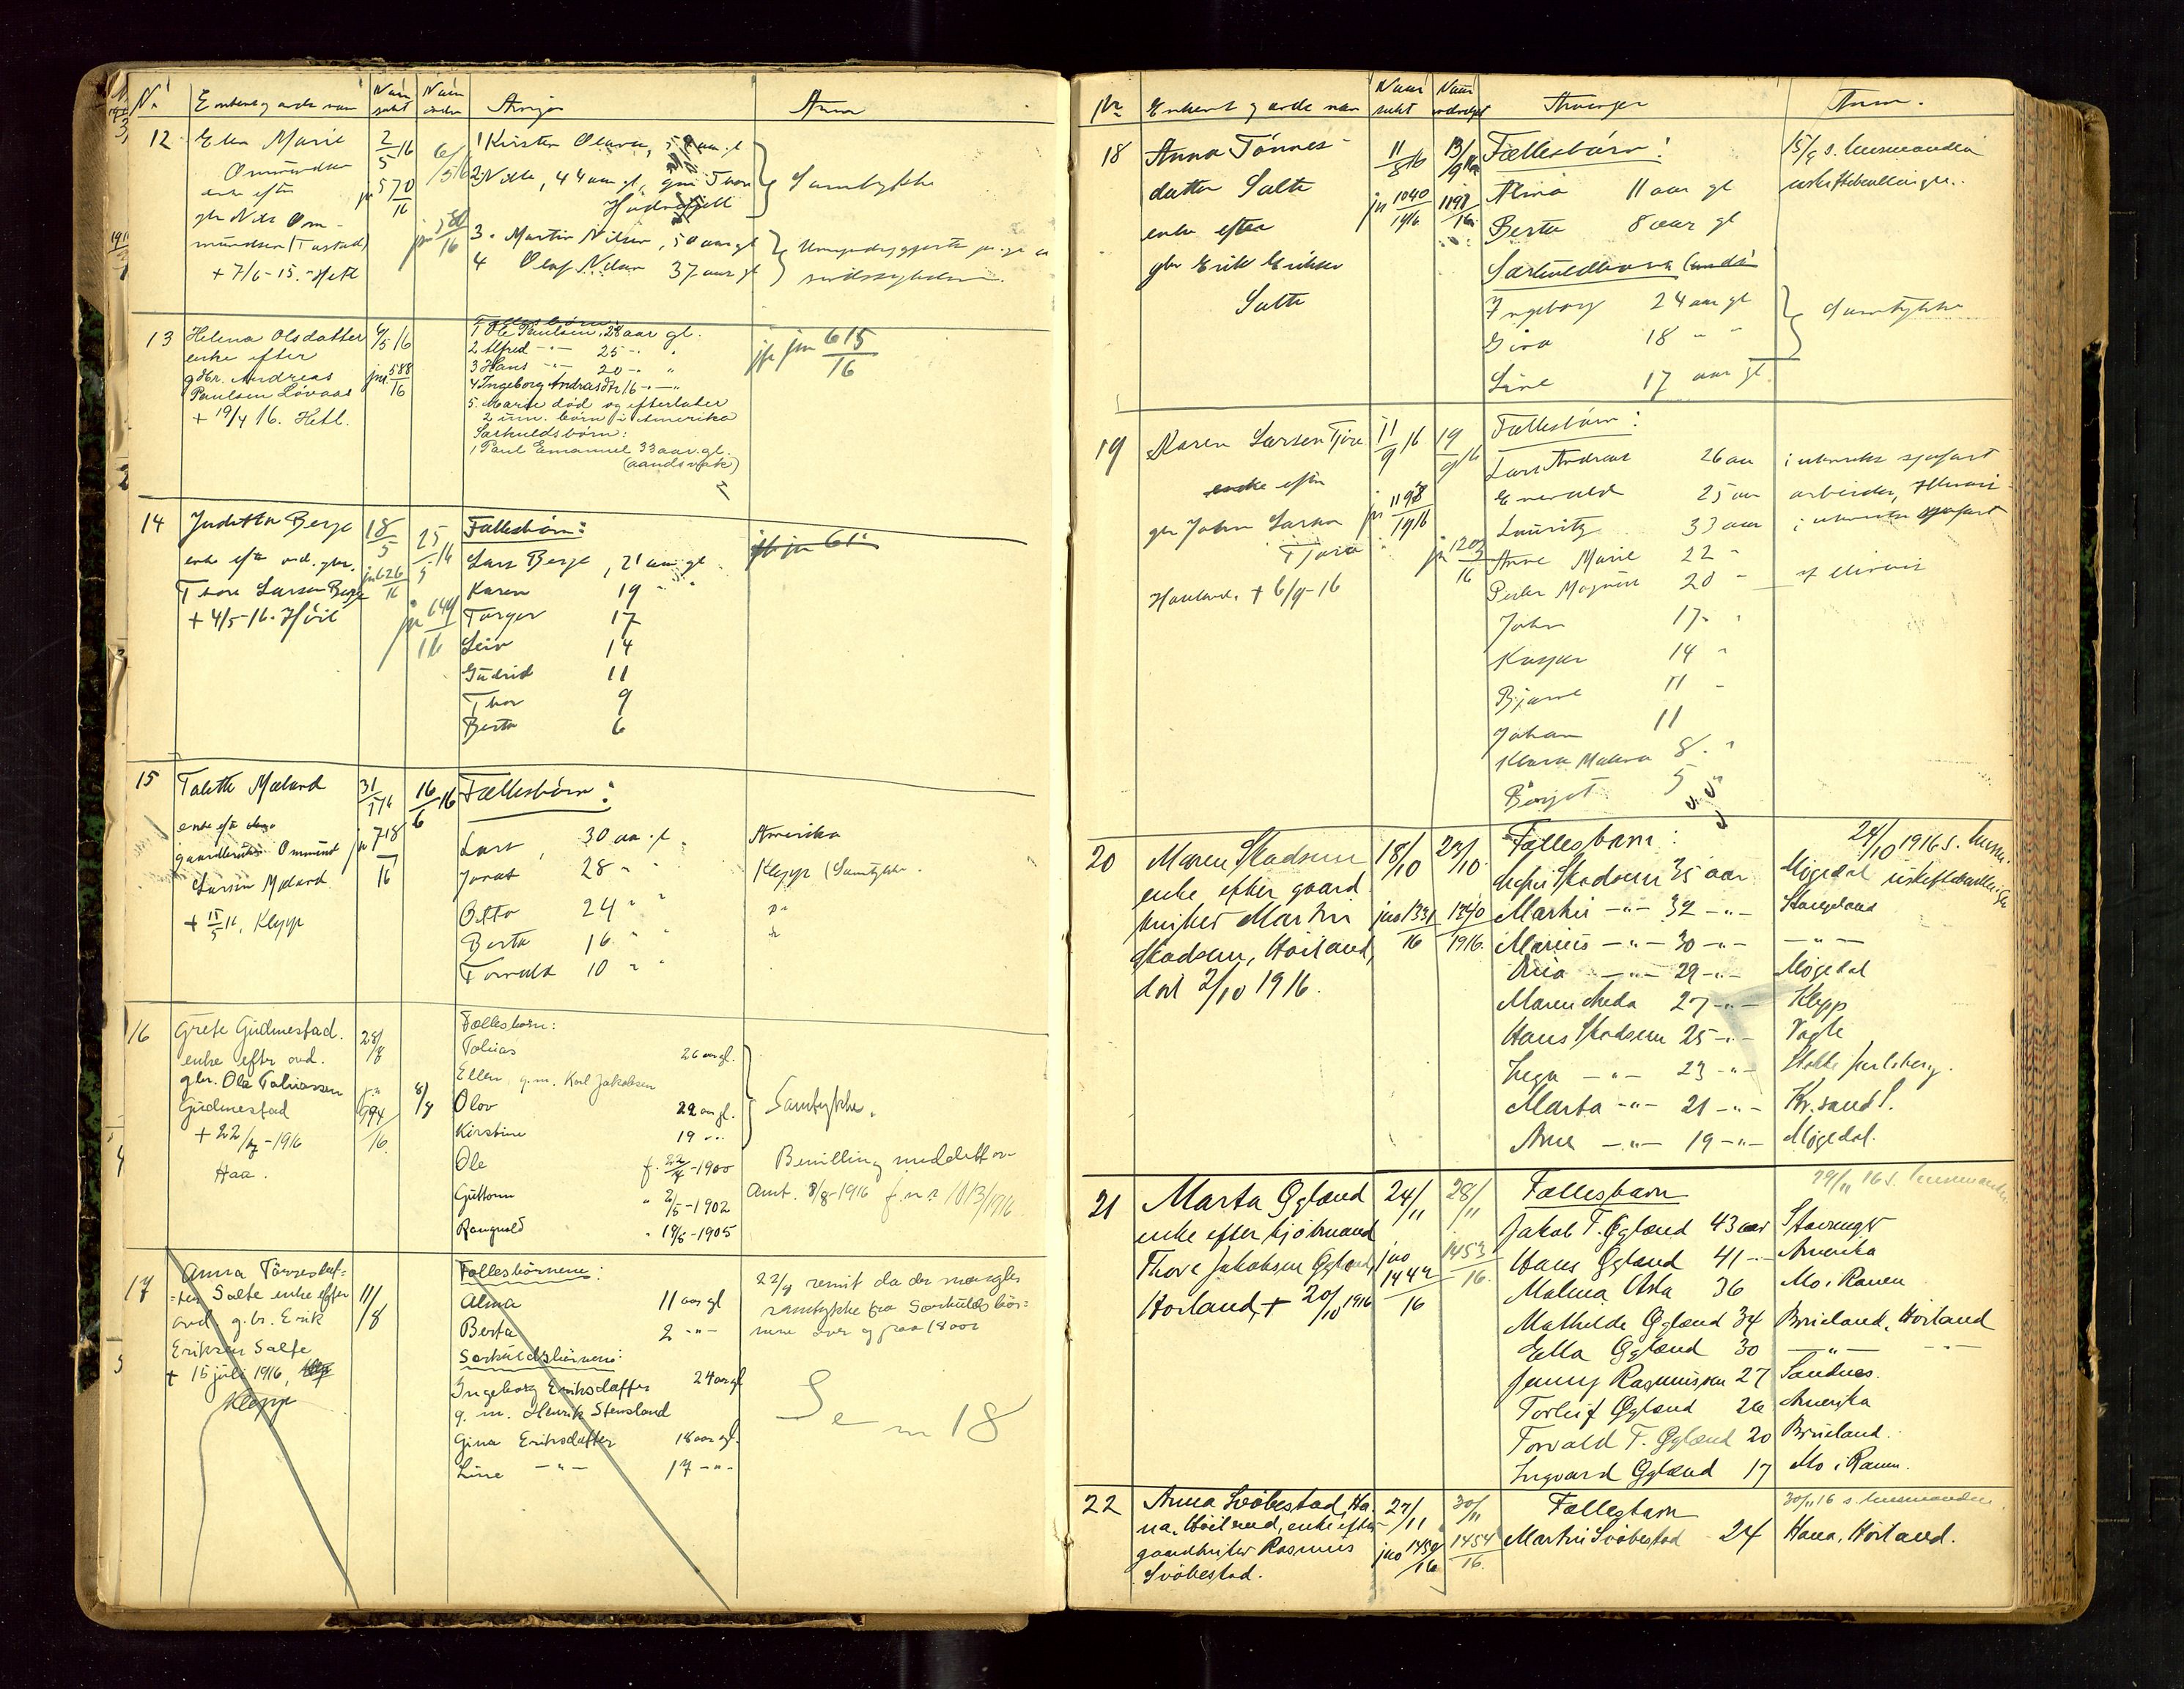 Nr. Enkens og avdødes navn Naar søkt Naar Arvinger Anm
12 Elen Marie
Omundsen
enke efter
gbr Nils Om-
mundsen (Tastad)
+ 7/6-15. Hetl
2/5 16
jn 570/16
6/5 16
jn 580/16
1 Kirsten Olava, 5 aar gl
2 44 aar gl, gm Tore
3. Martin Nilsen, 50 aar gl
4 Olaf Nilsen 37 aar gl
Samtykke
13 Helena Olsdatter
enke efter
gdbr. Andreas
Paulsen Lovaas
+ 19/4 16. Hetl.
6/5 16
jn. 588/16
Fællesbørn:
1 Ole Paulsen, 28 aar gl.
2 Alfred -"- 25 -"- "
3 Hans -"- 20 -"- "
4 Ingeborg Andreasdtr 16 -"-
5. Marie død og efterlater
2 um. børn i Amerika
Særkuldsbørn:
1, Paul Emanuel 33 aar gl.
(aandssvak)
jfr jnr 615/16
14 Juditta Berge
enke eft avd. gbr.
Tore Larsen Berge
+ 4/5-16. Høil
18/5
jn 626/16
25/5 16
jn 649/16
Fællesbørn:
Lars Berge, 21 aar gl
Karen 19 " "
Torger 17
Leiv 14
Gudrid 11
Thor 9
Berta 6
jfr jn 61
15 Talette Mæland
enke eft
gaardbruker Ommund
Larsen Mæland
+ 15/5 16, Klepp
31/5 16
jn 718/16
16/6 16
Fællesbørn:
Lars, 30 aa gl.
Jonas 28 " "
Otto 24 " "
Berta 16 " "
Torvald 10 " "
Amerika
Klepp (Samtykke.
16 Grete Gudmestad.
enke efter avd.
gbr. Ole Tobiassen
Gudmestad
+ 22/7-1916
Haa.
28/7
jn 994/16.
8/8
Fællesbørn:
Tobias 26 aar gl.
Ellen, g.m. Karl Jakobsen
Olov 22 aar gl.
Kirstine 19 -"-
Ole f. 22/4-1900
Guttorm " 2/5-1902
Rangvald " 19/6-1905
Samtykke.
Bevilling meddelt av
Amt. 8/8-1916 j.nr 1013/1916
17 Anna Tønnesdat-
ter Salte enke efter
avd. g.br. Erik
Eriksen Salte
+ 15 juli 1916,
Klepp
11/8
Fællesbørnene:
Alma 11 aar gl
Berta 2 -"-
Særkuldsbørnene:
Ingeborg Eriksdatter 24 aar gl
g. m. Henrik Stensland
Gina Eriksdatter 18 aar gl.
Line -"- 17 -"-
22/8 remit da der mangler
samtykke fra Særkuldsbør-
nene over og paa 18 aar
Se nr 18
Nr Enkens og avdødes navn Naar søkt Naar avgjort Arvinger Anm.
18 Anna Tønnes-
datter Salte
enke efter
gbr Erik Eriksen
Salte
11/8 16
jn 1040/1916
13/9 16
1198/16
Fællesbørn:
Alma 11 aar gl
Berta 8 aar gl
Særkuldbørn
Ingeborg 24 aar gl
Gina 18 " "
Line 17 aar gl.
15/9 s. lensmanden
uskiftebevilling.
Samtykke
19 Karen Larsen Tjøra
enke efter
gbr John Larsen
Tjøra
Haaland. + 6/9-16
11/9 16
jn 1198/1916
19/9 16
jn 1203/16
Fællesbørn:
Lars Andreas 26 aar
Enevald 25 aar
Lauritz 33 aar
Anne Marie 22 "
Peder Magnus 20 "
John 17 " "
Kasper 14 "
Bjarne 11 "
Johan 11
Klara Malena 8 " "
Borgot 5
i utenriks sjøfart
arbeider, Illinois
i utenriks sjøfart
Illinois
20 Maren Skadsem
enke efter gaard-
bruker Martin
Skadsem, Høiland,
død 2/10 1916.
18/10
jno 1331/16
24/10
1340/1916.
Fællesbarn:
Skadsem 35 aar
Martin -"- 32 -"-
Marius -"- 30 -"-
-"- 29 -"-
Maren 27 -"-
Hans Skadsem 25 -"-
Inga -"- 23 -"-
Marta -"- 21 -"-
Arne -"- 19 -"-
24/10 1916 s. lensm.
Møgedal uskiftebevilling
Stangeland
-"-
Møgedal
Klepp
Vagle
Stokke Jarlsberg.
Kr.sand S.
Møgedal.
21 Marta Øgland
enke efter kjøbmand
Thore Jakobsen Øgland,
Høiland, + 20/10 1916
24/11
jno 1444/16
28/11
1453/16.
Fællesbarn
Jakob T. Øgland 43 aar
Hans Øgland 41 -"-
Malena Asta 36
Mathilde Øgland 34
Ella Øgland 30
Jenny Rasmussen 27
Torleif Øgland 26
Torvald T. Øgland 20
Ingvard Øgland 17
29/11 16 s. lensmanden
Stavanger
Amerika
Mo i Ranen
Brueland, Høiland
-"- -"-
Sandnes.
Amerika
Brueland.
Mo i Ranen.
22 Anna Svøbestad, Ha-
na, Høiland, enke efter
gaardbruker Rasmus
Svøbestad.
27/11
jno 1450/16
30/11
1454/16.
Fællesbarn
Martin Svøbestad 24
30/11 16 s. lensmanden.
Hana, Høiland.